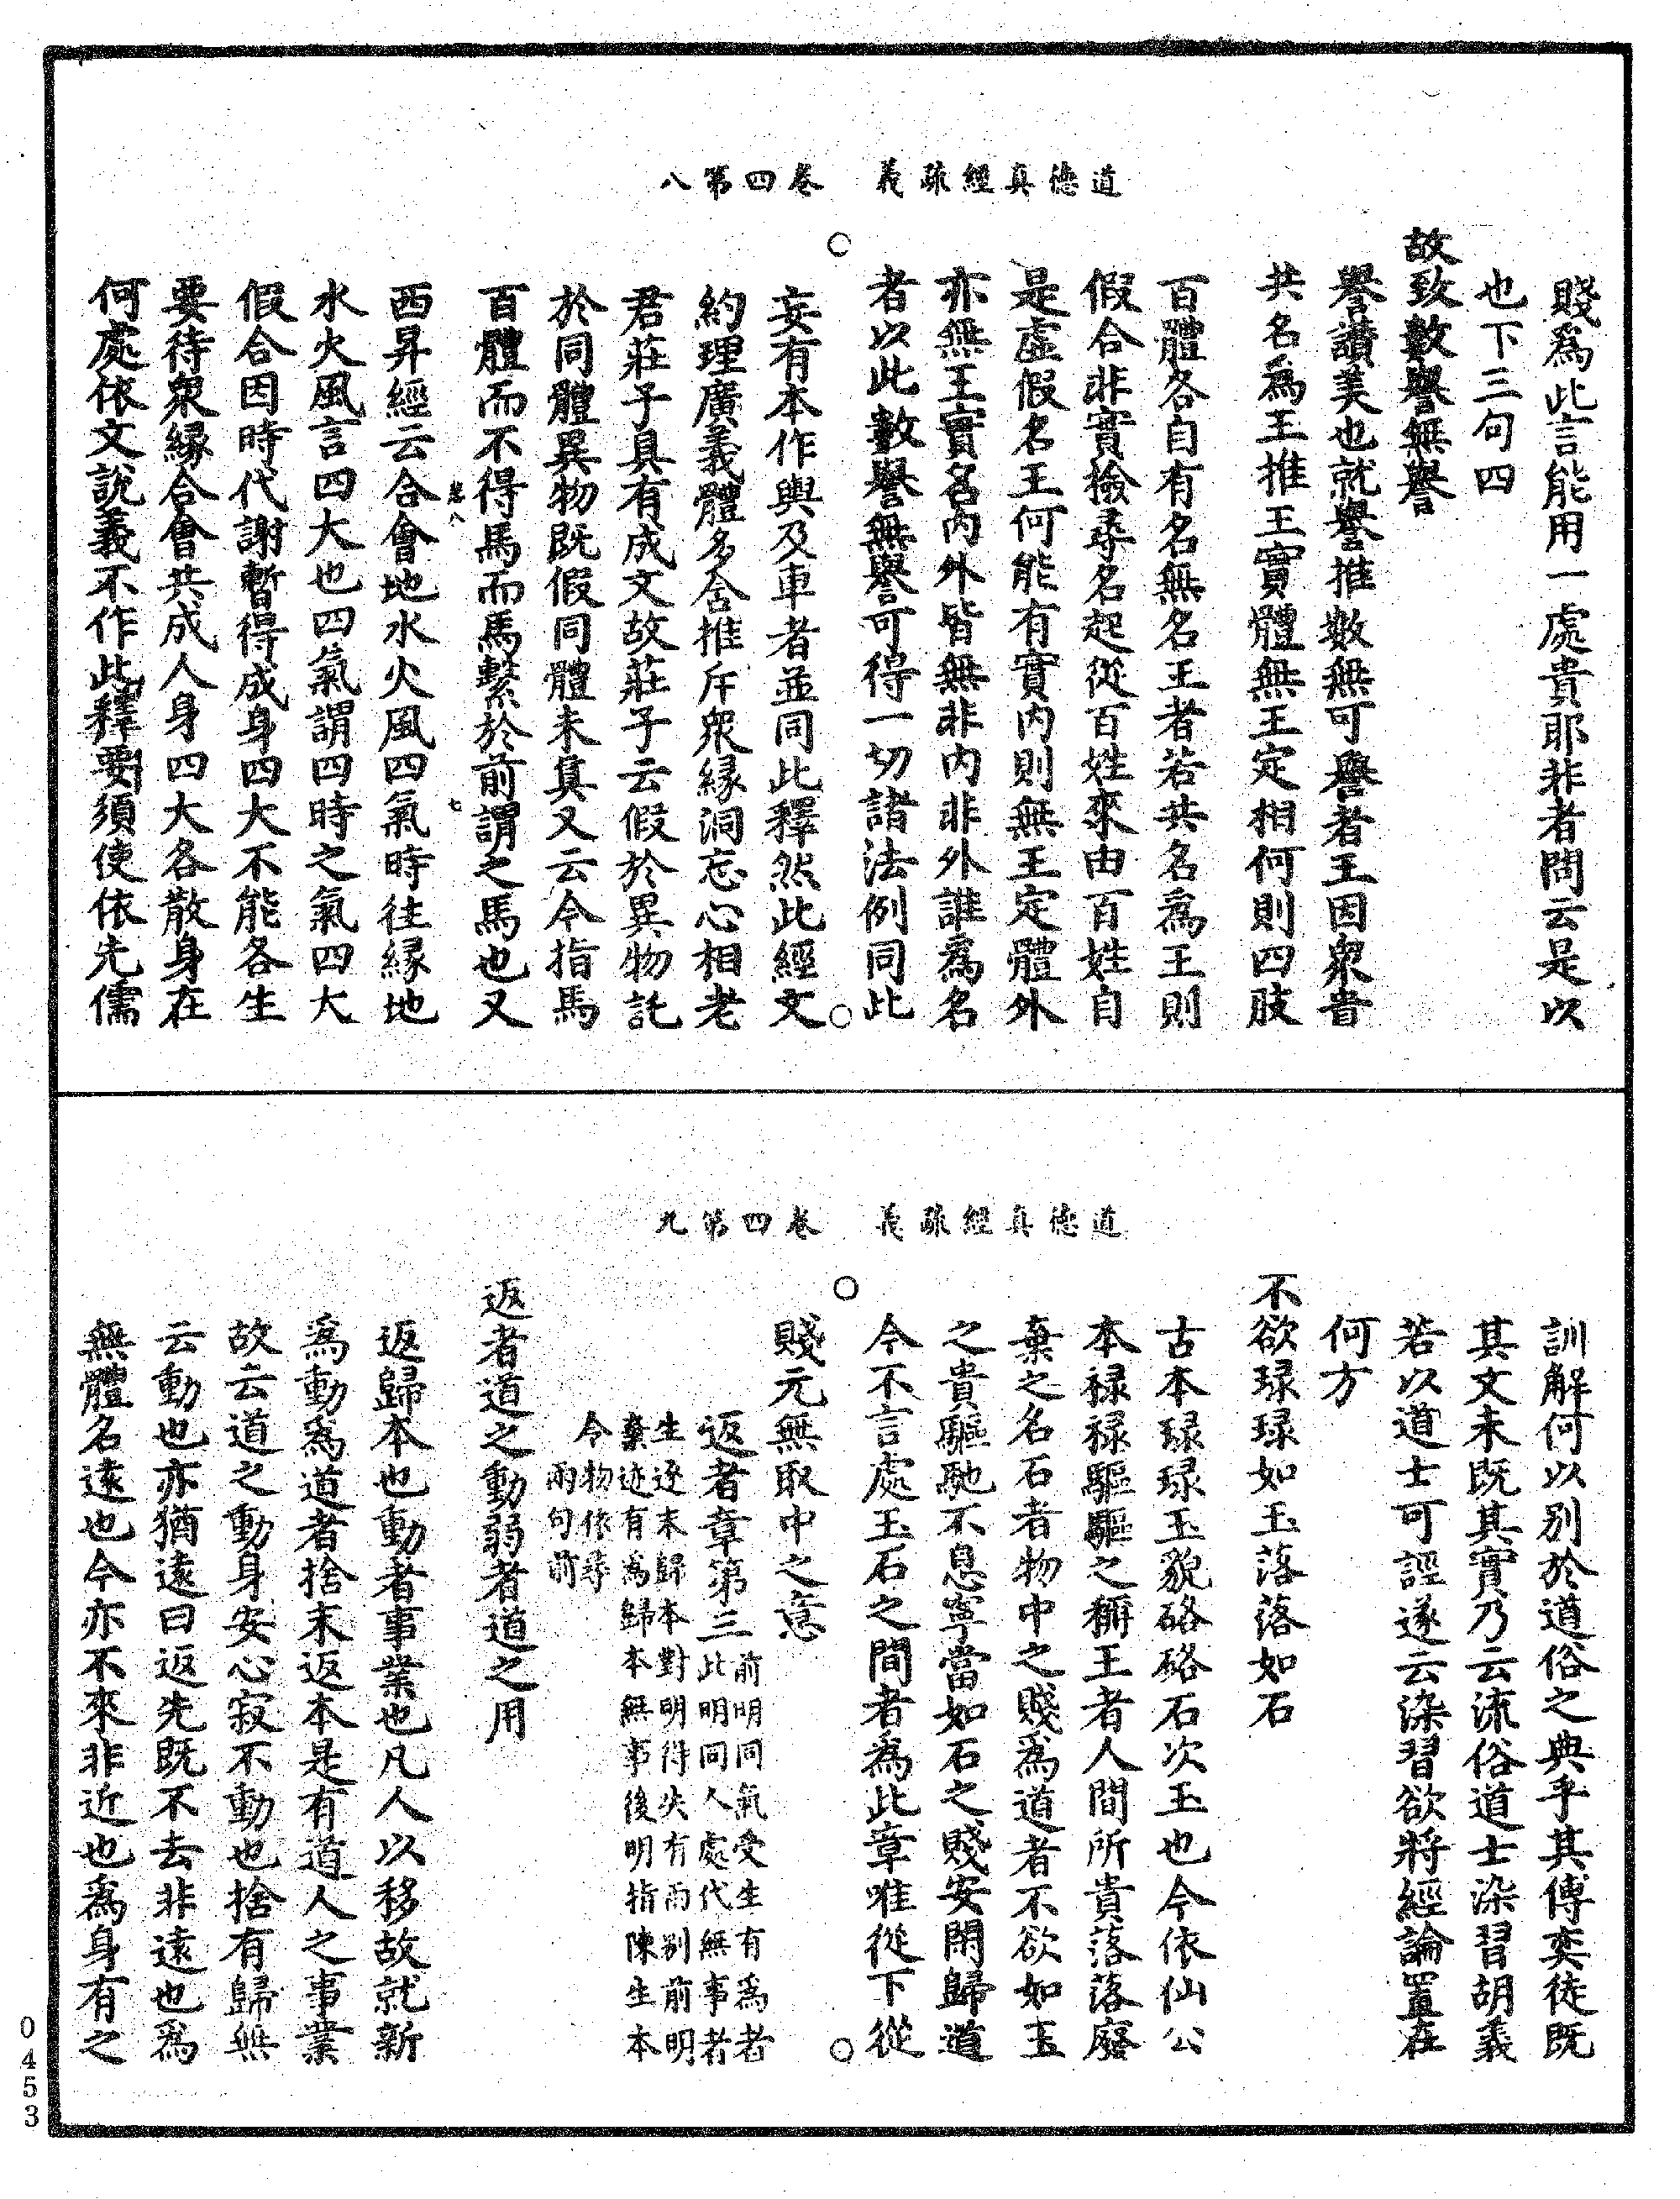 道德真經疏義　卷四第八
賤爲此言能用一處貴耶非者問云是以
也下三句四
故致數譽無譽
譽讚美也就譽推數無可譽者王因衆貴
共名爲王推王實體無王定相何則四肢
百體各自有名無名王者若共名爲王則
假合非實撿尋名起從百姓來由百姓自
是虛假名王何能有實內則無王定體外
亦無王實名內外皆無非內非外誰爲名
者以此數譽無譽可得一切諸法例同此
妄有本作輿及車者並同此釋然此經文
約理廣義體多含推斥衆緣洞忘心相老
君莊子具有成文故莊子云假於異物託
於同體異物既假同體未真又云今指馬
百體而不得馬而馬繫於前謂之馬也又
西昇經云合會地水火風四氣時往緣地
水火風言四大也四氣謂四時之氣四大
假合因時代謝暫得成身四大不能各生
要待衆緣合會共成人身四大各散身在
何處依文說義不作此釋要須使依先儒
道德真經疏義　卷四第九
訓解何以別於道俗之典乎其傅奕徒既
其文未既其實乃云流俗道士染習胡義
若以道士可誣遂云染習欲將經論置在
何方
不欲琭琭如玉落落如石
古本琭琭玉貌硌硌石次玉也今依仙公
本祿祿驅驅之稱王者人間所貴落落廢
棄之名石者物中之賤爲道者不欲如玉
之貴驅馳不息寧當如石之賤安閑歸道
今不言處玉石之間者爲此章唯從下從
賤元無取中之意
返者章第三
前明同氣受生有爲者
此明同人處代無事者
生逐末歸本對明得失有兩別前明
棄迹有爲歸本無事後明指陳生本
今物依尋
兩句前
返者道之動弱者道之用
返歸本也動者事業也凡人以移故就新
爲動爲道者捨末返本是有道人之事業
故云道之動身安心寂不動也捨有歸無
云動也亦猶遠曰返先既不去非遠也爲
無體名遠也今亦不來非近也爲身有之
0453